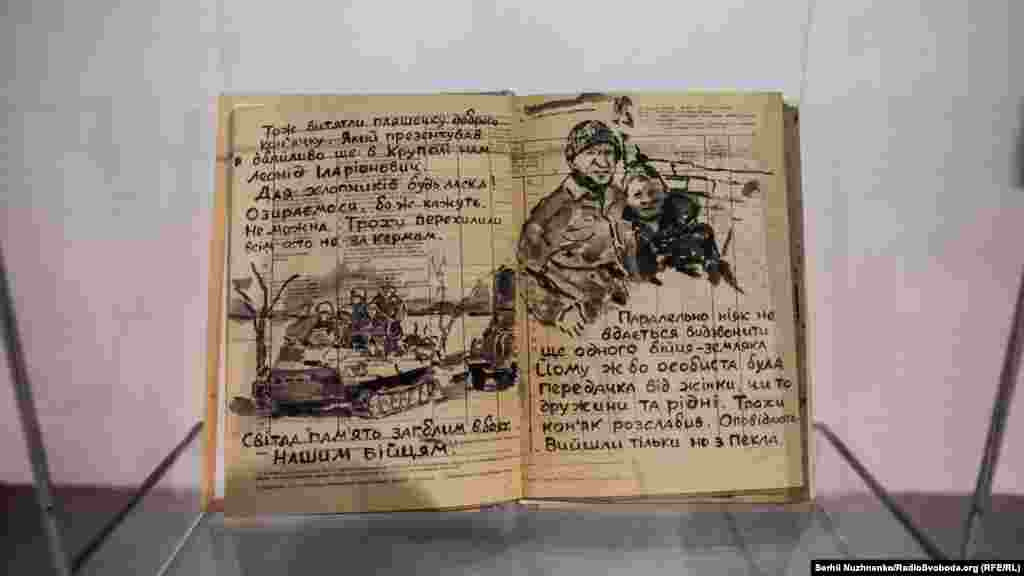 Тож витягли пляшечку доброго
кон'ячку. Який презентував
дбайливо ще в Крупей нам
Леонід Іларіонович.
Для хлопчиків будь ласка!
Озираємося, бо ж кажуть,
Не можна. Трохи перехилили
всім хто не за кермом.
Світла пам'ять загиблим в боях
Нашим бійцям.
Паралельно ніяк не
вдається видзвонити
ще одного бійця-земляка
Йому ж бо особиста була
передачка від жінки, чи то
дружини та рідні. Трохи
кон'як розслабив. Оповідають.
Вийшли тільки но з пекла.
Serhii Nuzhnenko/RadioSvoboda.org (RFE/RL)